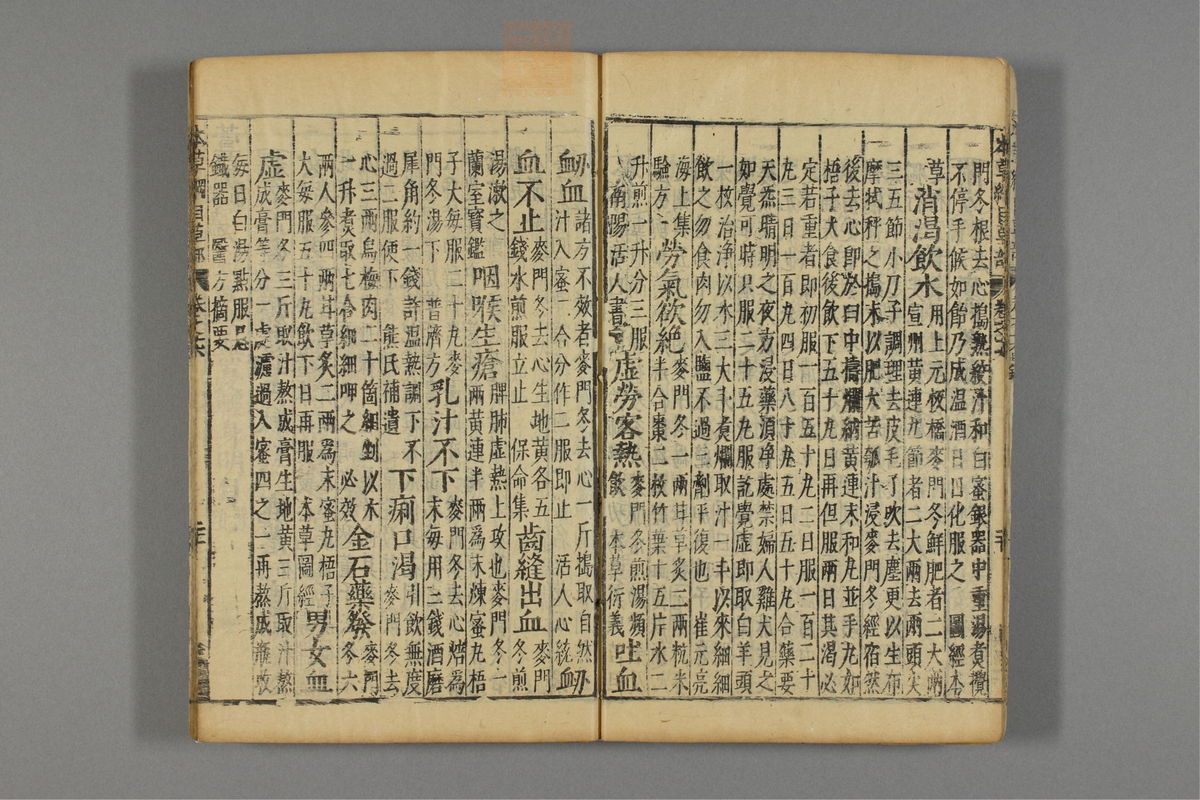 門冬根去心搗熟絞汁和白蜜銀器中重湯煮攪
不停手候如飴乃成温酒日日化服之 圖經本
草 消渴飲水 用上元板橋麥門冬鮮肥者二大兩 宣州黄連九節者二大兩去兩頭尖
三五節小刀子調理去皮毛了吹去塵更以生布
摩拭秤之搗末以肥大苦瓠汁浸麥門冬經宿然
後去心即於臼中擣爛納黄連末和丸並手丸如
梧子大食後飲下五十丸日再但服兩日其渴必
定若重者即初服一百五十丸二日服一百二十
丸三日一百丸四日八十丸五日五十丸合藥要
天炁晴明之夜方浸藥須淨處禁婦人雞犬見之
如覺可時只服二十五丸服訖覺虛即取白羊頭
一枚治淨以水三大斗煮爛取汁一斗以來細細
飲之勿食肉勿入鹽不過三劑平復也 崔元亮
海上集驗方 勞氣欲絶 麥門冬一兩甘草炙二兩秔米半合棗二枚竹葉十五片水二
升煎一升分三服 南陽活人書 虛勞客熱 麥門冬煎湯頻飲 本草衍義 吐血
衂血 諸方不效者麥門冬去心一斤搗取自然汁入蜜二合分作二服即止 活人心統 衂
血不止 麥門冬去心生地黄各五錢水煎服立止 保命集 齒縫出血 麥門冬煎
湯漱之 蘭室寶鑑 咽喉生瘡 脾肺虛熱上攻也麥門冬一兩黄連半兩爲末煉蜜丸梧
子大每服二十丸麥門冬湯下 普濟方 乳汁不下 麥門冬去心焙爲末每用三錢酒磨
犀角約一錢許温熱調下不過二服便下 熊氏補遺 下痢口渴 引飲無度麥門冬去
心三兩烏梅肉二十箇細剉以水一升煮取七合細細呷之 必效 金石藥發 麥門冬六
兩人參四兩甘草炙二兩爲末蜜丸梧子大每服五十丸飲下日再服 本草圖經 男女血
虛 麥門冬三斤取汁熬成膏生地黄三斤取汁熬成膏等分一處濾過入蜜四之一再熬成瓶收
每日白湯點服忌鐵器 醫方摘要
本草綱目草部
卷之十六